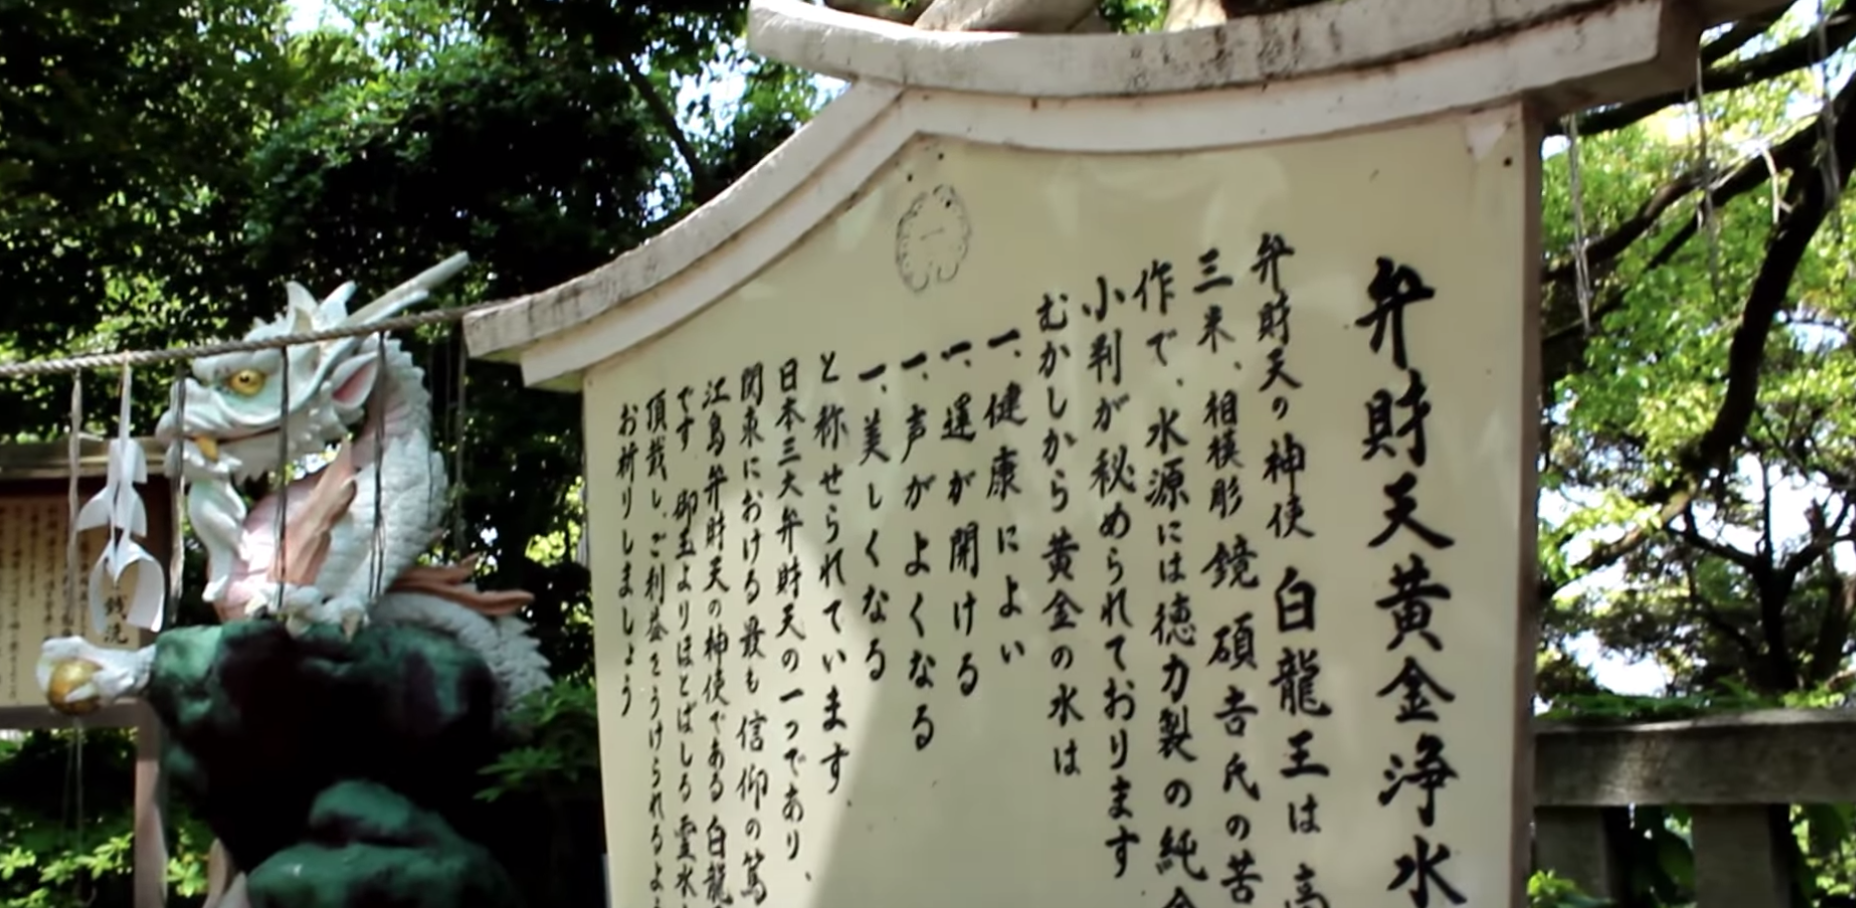 弁財天黄金浄水
弁財天の神使 白龍王は
三末、相模彫 鏡碩吉氏の苦
作で、水源には徳力製の純金
小判が秘められております
むかしから黄金の水は
一、健康によい
一、運が開ける
一、声がよくなる
一、美しくなる
と称せられています
日本三大弁財天の一つであり、
関東における最も信仰の篤
江島弁財天の神使である白龍
です 御玉よりほとばしる霊水
頂戴し、ご利益をうけられるよ
お祈りしましょう
銭洗